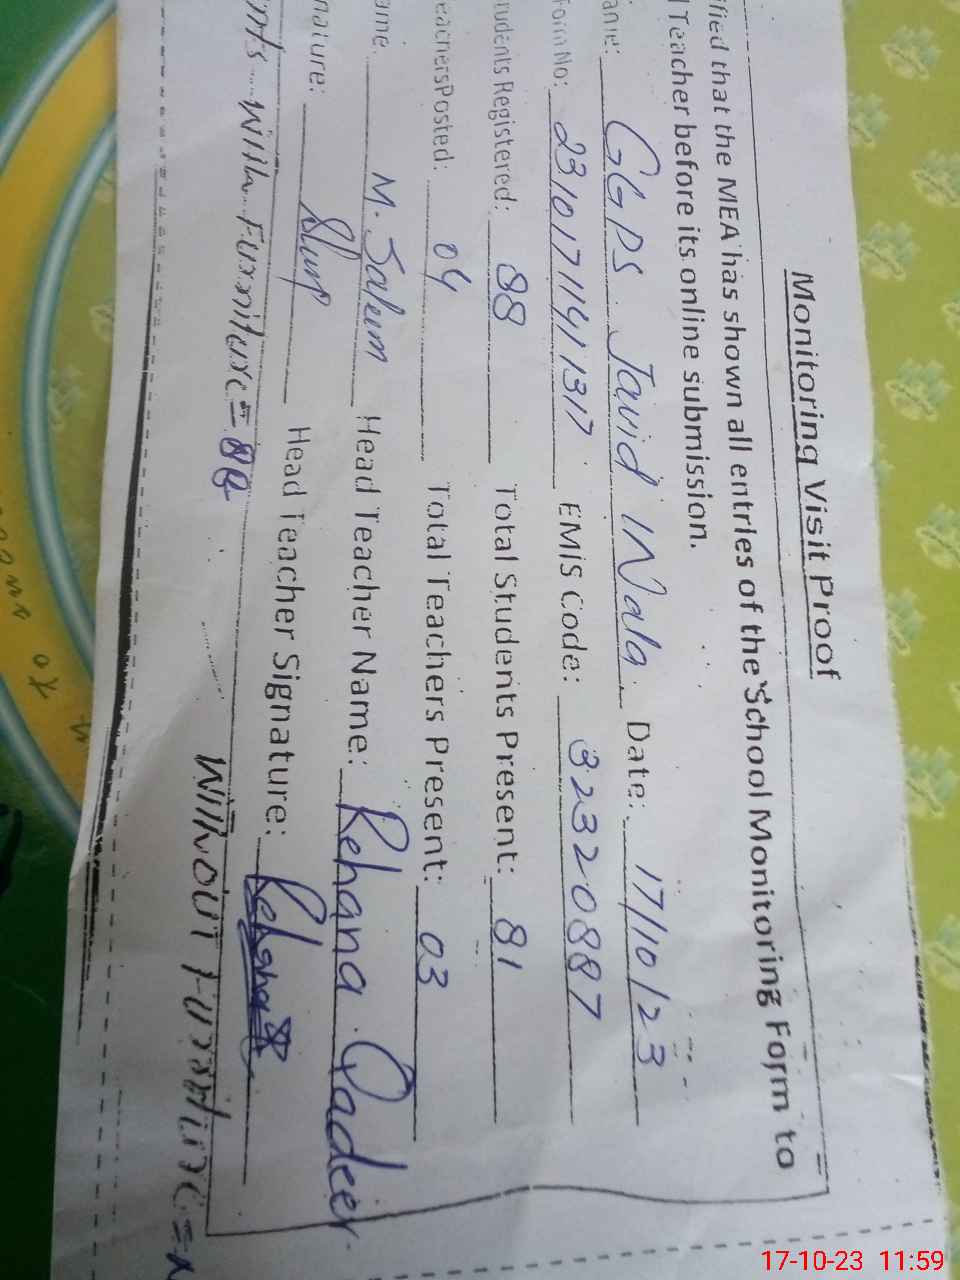 Monitoring Visit Proof
ified that the MEA has shown all entries of the School Monitoring Form to
Teacher before its online submission.
ame: GGPS Javid Wala Date: 17/10/23
Form No: 2310171141317 EMIS Code: 32320887
tudents Registered: 88 Total Students Present: 81
eachers Posted: 04 Total Teachers Present: 03
ame: M. Saleem Head Teacher Name: Rehana Qadeer
nature: Head Teacher Signature: Rehana
nts with Furniture = Without Furniture =
17-10-23 11:59